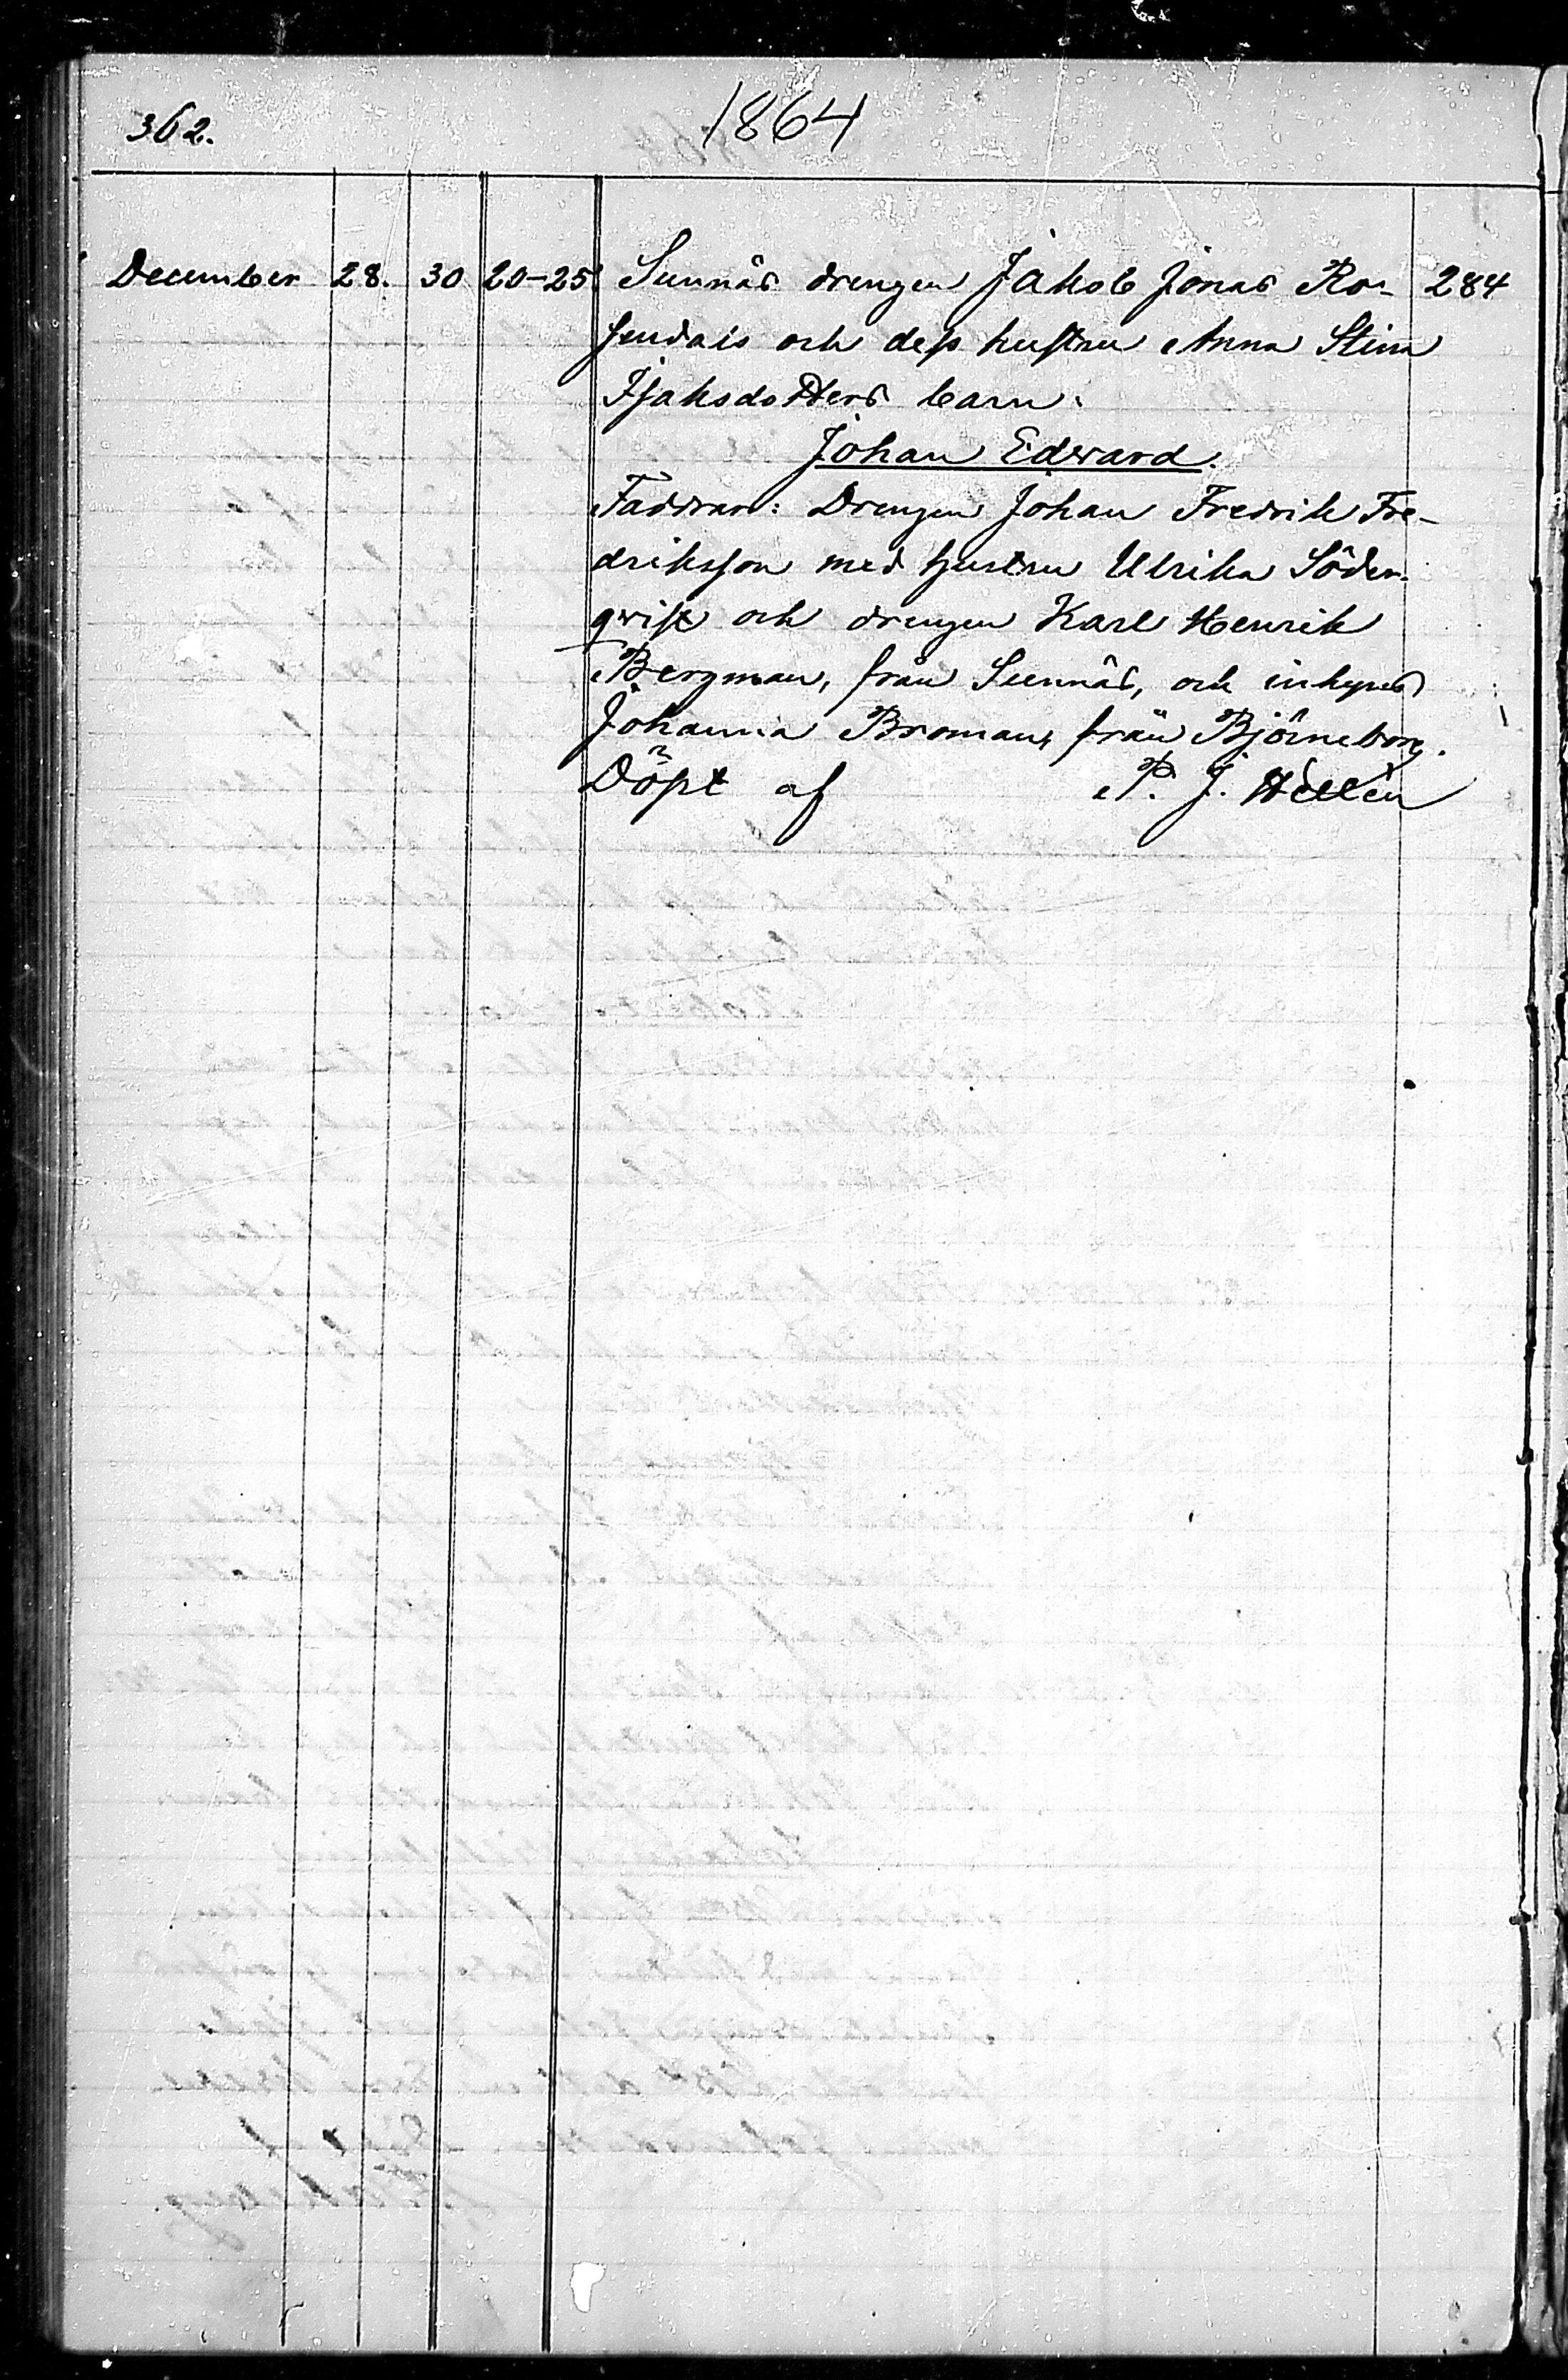 362.
1864
December 28. 30 20-25 Sunnäs drengen Jakob Jonas Ro- 284
sendals och dess hustru Anna Stina
Isaksdotters barn:
Johan Edvard.
Faddrar: Drengen Johan Fredrik Fre-
driksson med hustru Ulrika Söder-
qvist och drengen Karl Henrik
Bergman, från Sunnäs, och inhyses
Johanna Broman, från Björneborg.
Döpt af P. J. Hellén